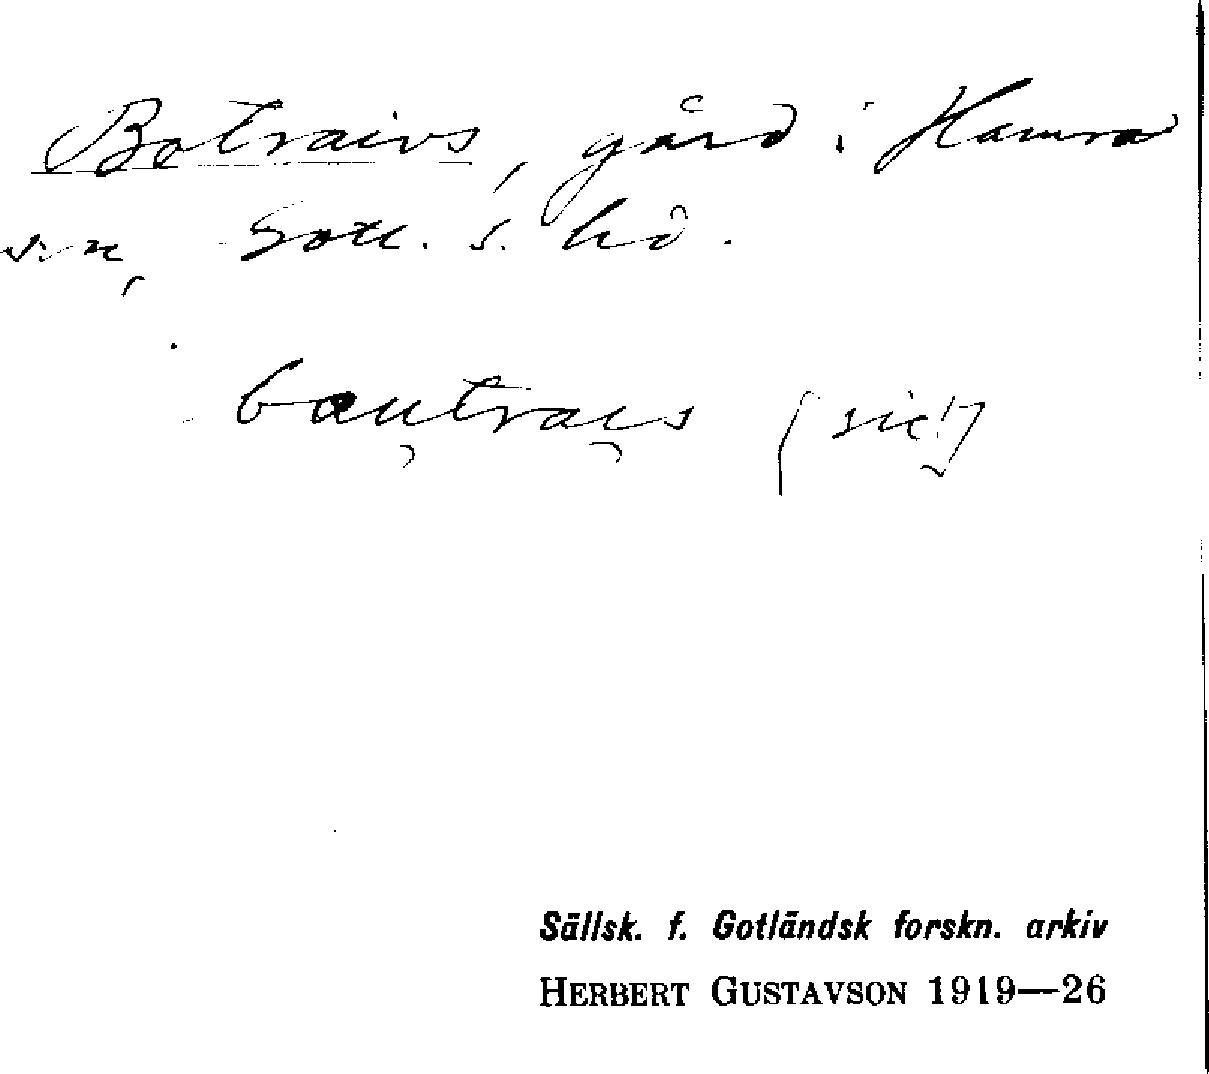 Botraivs, gård i Hamra
sn, Gotl. s. hd.
bau̯trai̯s (sic!)
Sällsk. f. Gotländsk forskn. arkiv
HERBERT GUSTAVSON 1919—26